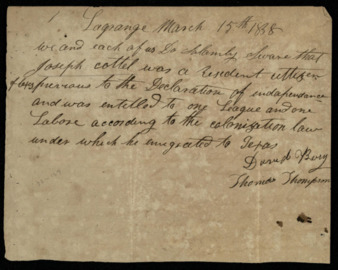 Lagrange March 15th 1838
we and each of us do Solemnly Sware that
Joseph Cottel was a resident citizen
previous to the Declaration of independance
and was entitled to one League and one
Labore according to the colonization law
under which he emigrated to Texas
David Berry
Thomas Thompson